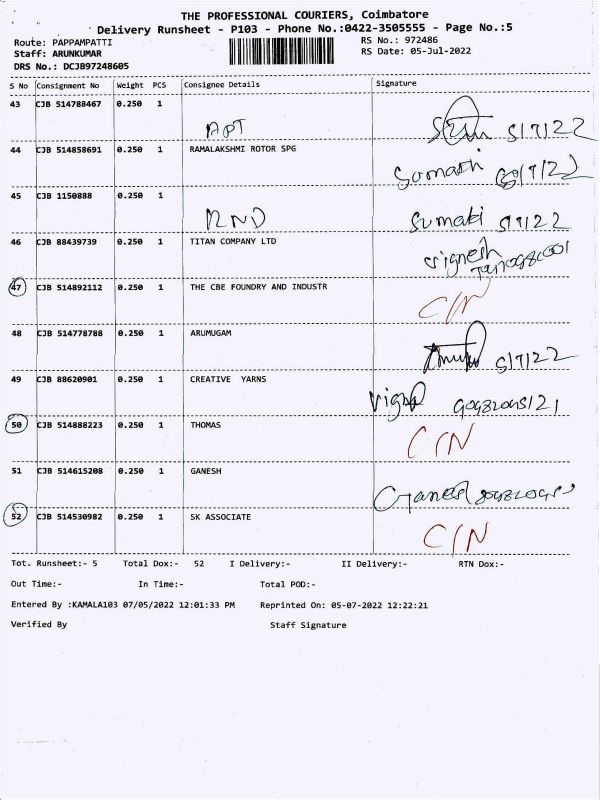 THE PROFESSIONAL COURIERS, Coimbatore
Delivery Runsheet - P103 - Phone No.:0422-3505555 - Page No.:5
Route: PAPPAMPATTI RS No.: 972486
Staff: ARUNKUMAR RS Date: 05-Jul-2022
DRS No.: DCJB97248605
S No Consignment No Weight PCS Consignee Details Signature
43 CJB 514788467 0.250 1
APT 5/7/22
44 CJB 514858691 0.250 1 RAMALAKSHMI ROTOR SPG
Sumathi
45 CJB 1150888 0.250 1
RND Sumathi
46 CJB 88439739 0.250 1 TITAN COMPANY LTD
Vignesh
47 CJB 514892112 0.250 1 THE CBE FOUNDRY AND INDUSTR
C/N
48 CJB 514778788 0.250 1 ARUMUGAM
5/7/22
49 CJB 88620901 0.250 1 CREATIVE YARNS
50 CJB 514888223 0.250 1 THOMAS
C/N
51 CJB 514615208 0.250 1 GANESH
Ganesh
52 CJB 514530982 0.250 1 SK ASSOCIATE
C/N
Tot. Runsheet:- 5 Total Dox:- 52 I Delivery:- II Delivery:- RTN Dox:-
Out Time:- In Time:- Total POD:-
Entered By :KAMALA103 07/05/2022 12:01:33 PM Reprinted On: 05-07-2022 12:22:21
Verified By Staff Signature